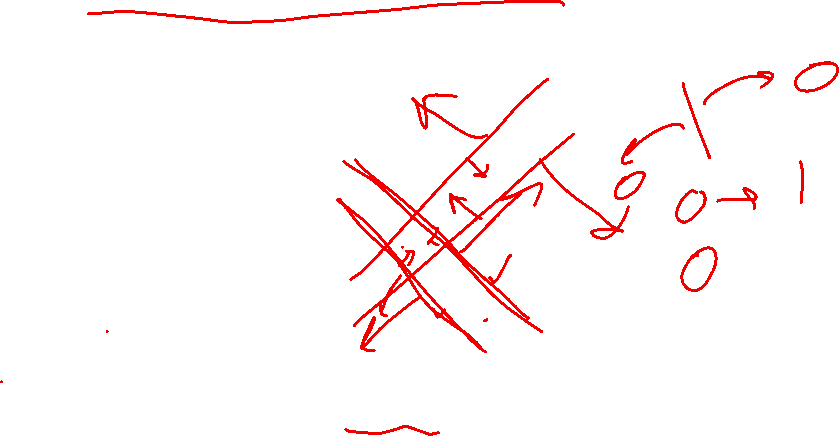 0
0 0 → 1
0